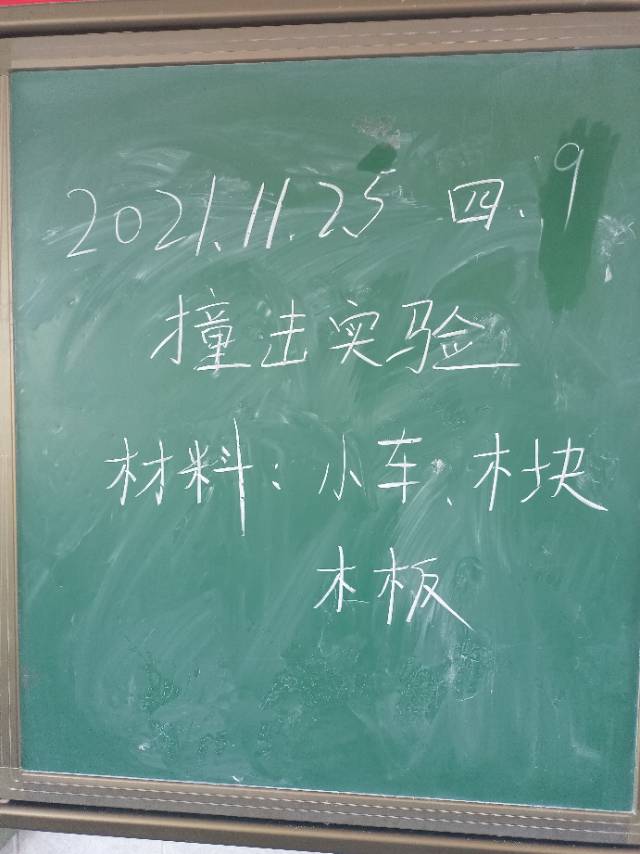 2021.11.25 四.9
撞击实验
材料:小车、木块
木板